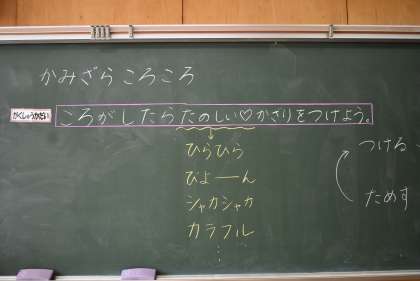 かみざら ころころ
がくしゅうかだい
ころがしたらたのしい♡かざりをつけよう。
ひらひら
びよーーん
シャカシャカ
カラフル
⋮
つける
ためす